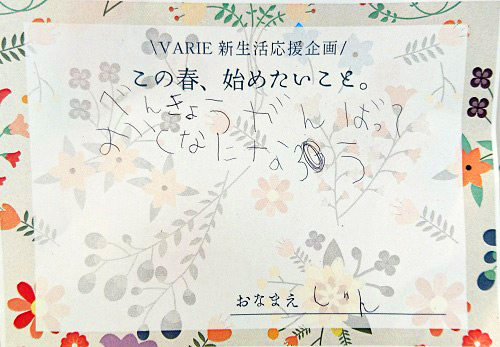 \VARIE 新生活応援企画/
この春、始めたいこと。
べんきょうがんばって
おとなになろう
おなまえ しゅん